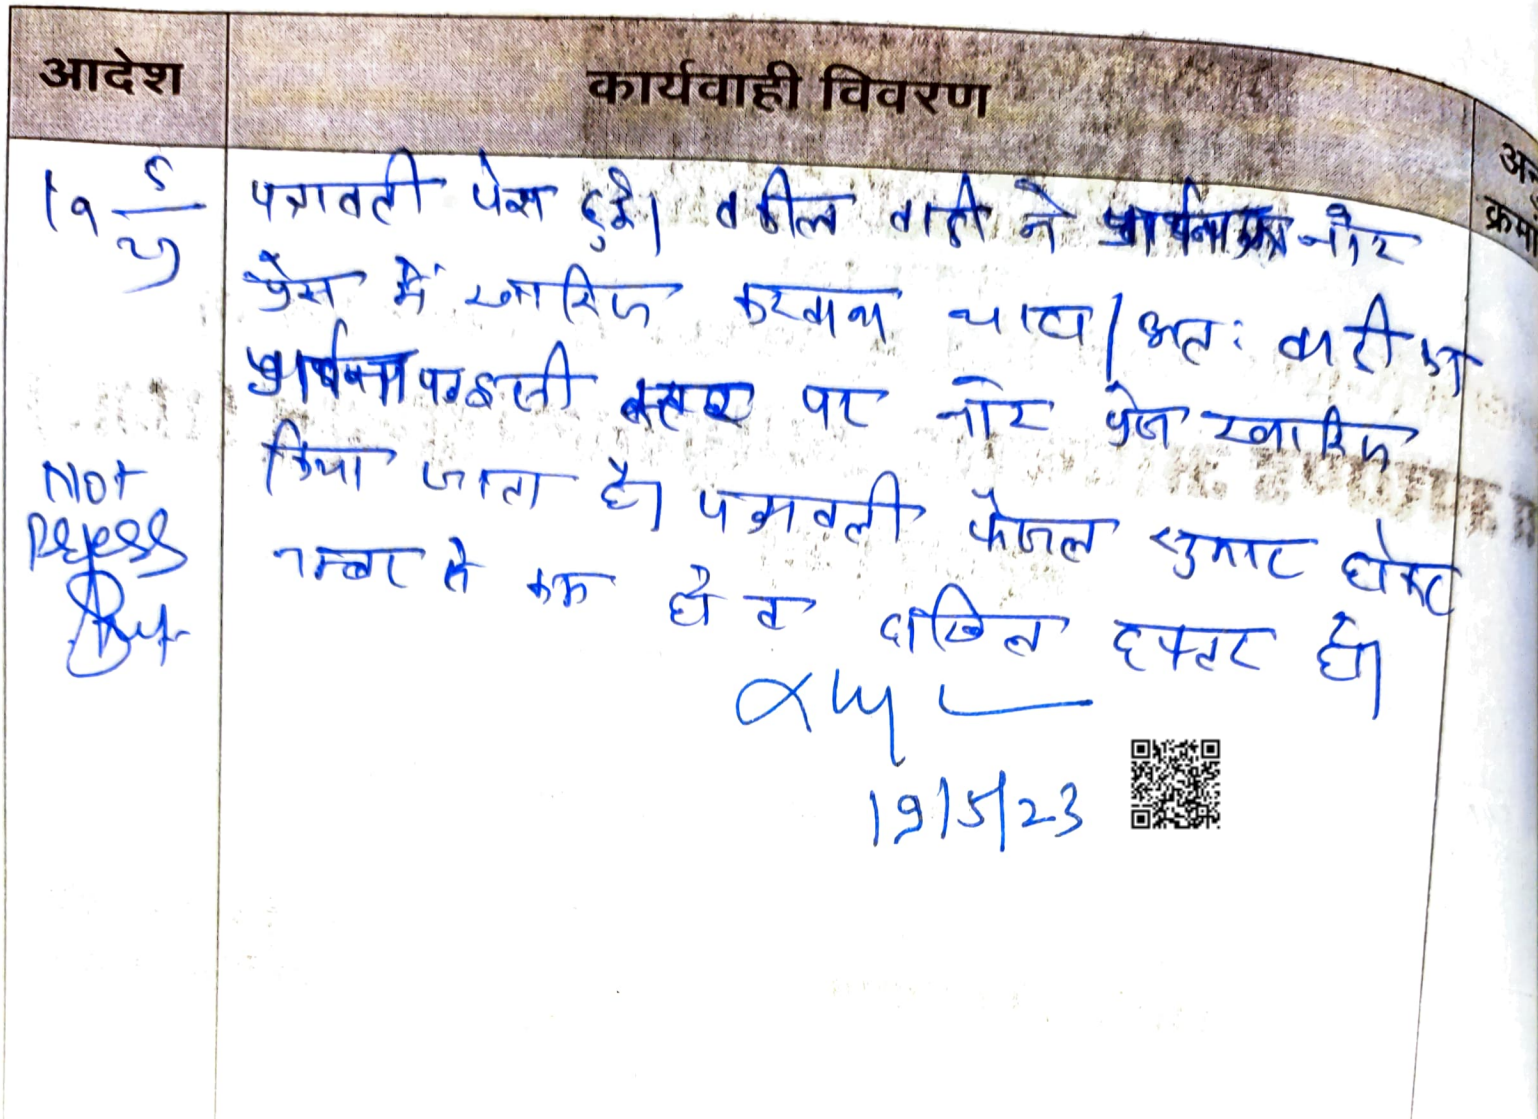 आदेश
कार्यवाही विवरण
क्रमां
19 5/23
पत्रावली पेश हुई। वकील वादी ने प्रार्थना पत्र नोट
प्रेस में खारिज करवाना चाहा। अतः वादी का
प्रार्थना पत्र इसी स्तर पर नोट प्रेस खारिज
किया जाता है। पत्रावली फैसल शुमार होकर
नम्बर से कम हो व दाखिल दफ्तर हो।
Not
Press
19/5/23